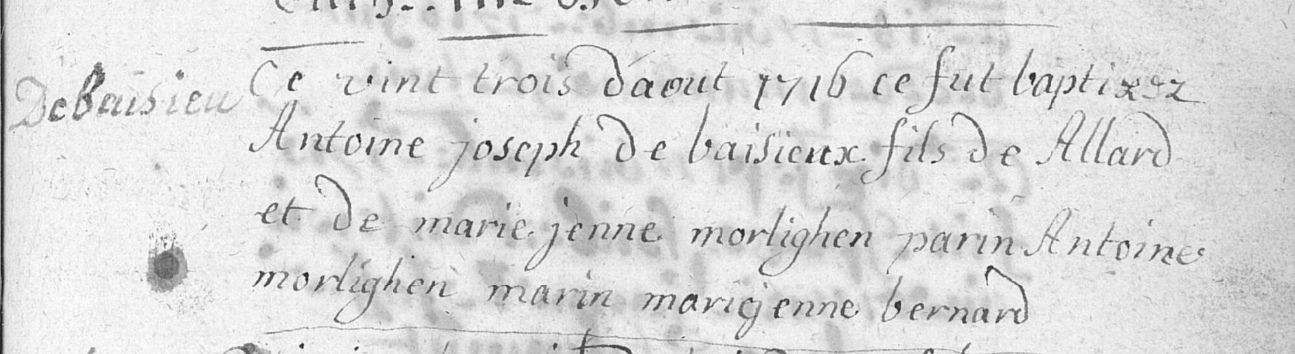 DeBaisieu
Ce vint trois daout 1716 ce fut baptizez
Antoine joseph de baisieux fils de Allard
et de marie jenne morlighen parin Antoine
morlighen marin marie jenne bernard